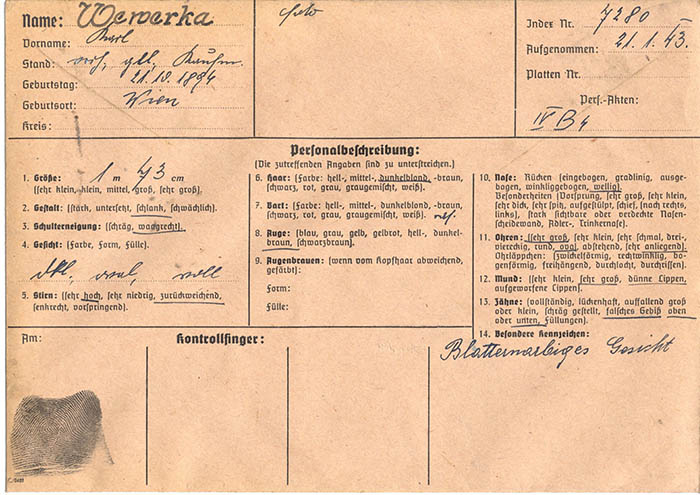 Name: Wewerka
Vorname: Karl
Stand: verh, gll, Kaufm.
Geburtstag: 21.10.1894
Geburtsort: Wien
Kreis:
foto
Index Nr. 7280
Aufgenommen: 21.1.43.
Platten Nr.
Pers.-Akten:
IV B 4
Personalbeschreibung:
(Die zutreffenden Angaben sind zu unterstreichen.)
1. Größe: 1 m 73 cm
(sehr klein, klein, mittel, groß, sehr groß).
2. Gestalt: (stark, untersetzt, schlank, schwächlich).
3. Schulterneigung: (schräg, waagrecht).
4. Gesicht: (Farbe, Form, Fülle).
dkl, oval, voll
5. Stirn: (sehr hoch, sehr niedrig, zurückweichend,
senkrecht, vorspringend).
6. Haar: (Farbe: hell-, mittel-, dunkelblond, -braun,
schwarz, rot, grau, graugemischt, weiß).
7. Bart: (Farbe: hell-, mittel-, dunkelblond, -braun,
schwarz, rot, grau, graugemischt, weiß).
8. Auge: (blau, grau, gelb, gelbrot, hell-, dunkel-
braun, schwarzbraun).
9. Augenbrauen: (wenn vom Kopfhaar abweichend,
gefärbt):
Form:
Fülle:
10. Nase: Rücken (eingebogen, gradlinig, ausge-
bogen, winkliggebogen, wellig).
Besonderheiten (Vorsprung, sehr groß, sehr klein,
sehr dick, sehr spitz, aufgestülpt, schief, [nach rechts,
links], stark sichtbare oder verdeckte Nasen-
scheidewand, Adler-, Trinkernase).
11. Ohren: (sehr groß, sehr klein, sehr schmal, drei-
viereckig, rund, oval, abstehend, sehr anliegend).
Ohrläppchen: (zwickelförmig, rechtwinklig, bo-
genförmig, freihängend, durchlocht, durchrissen).
12. Mund: (sehr klein, sehr groß, dünne Lippen,
aufgeworfene Lippen).
13. Zähne: (vollständig, lückenhaft, auffallend groß
oder klein, schräg gestellt, falsches Gebiß oben
oder unten, Füllungen).
14. Besondere Kennzeichen:
Blatternarbiges Gesicht
Am:
Kontrollfinger: